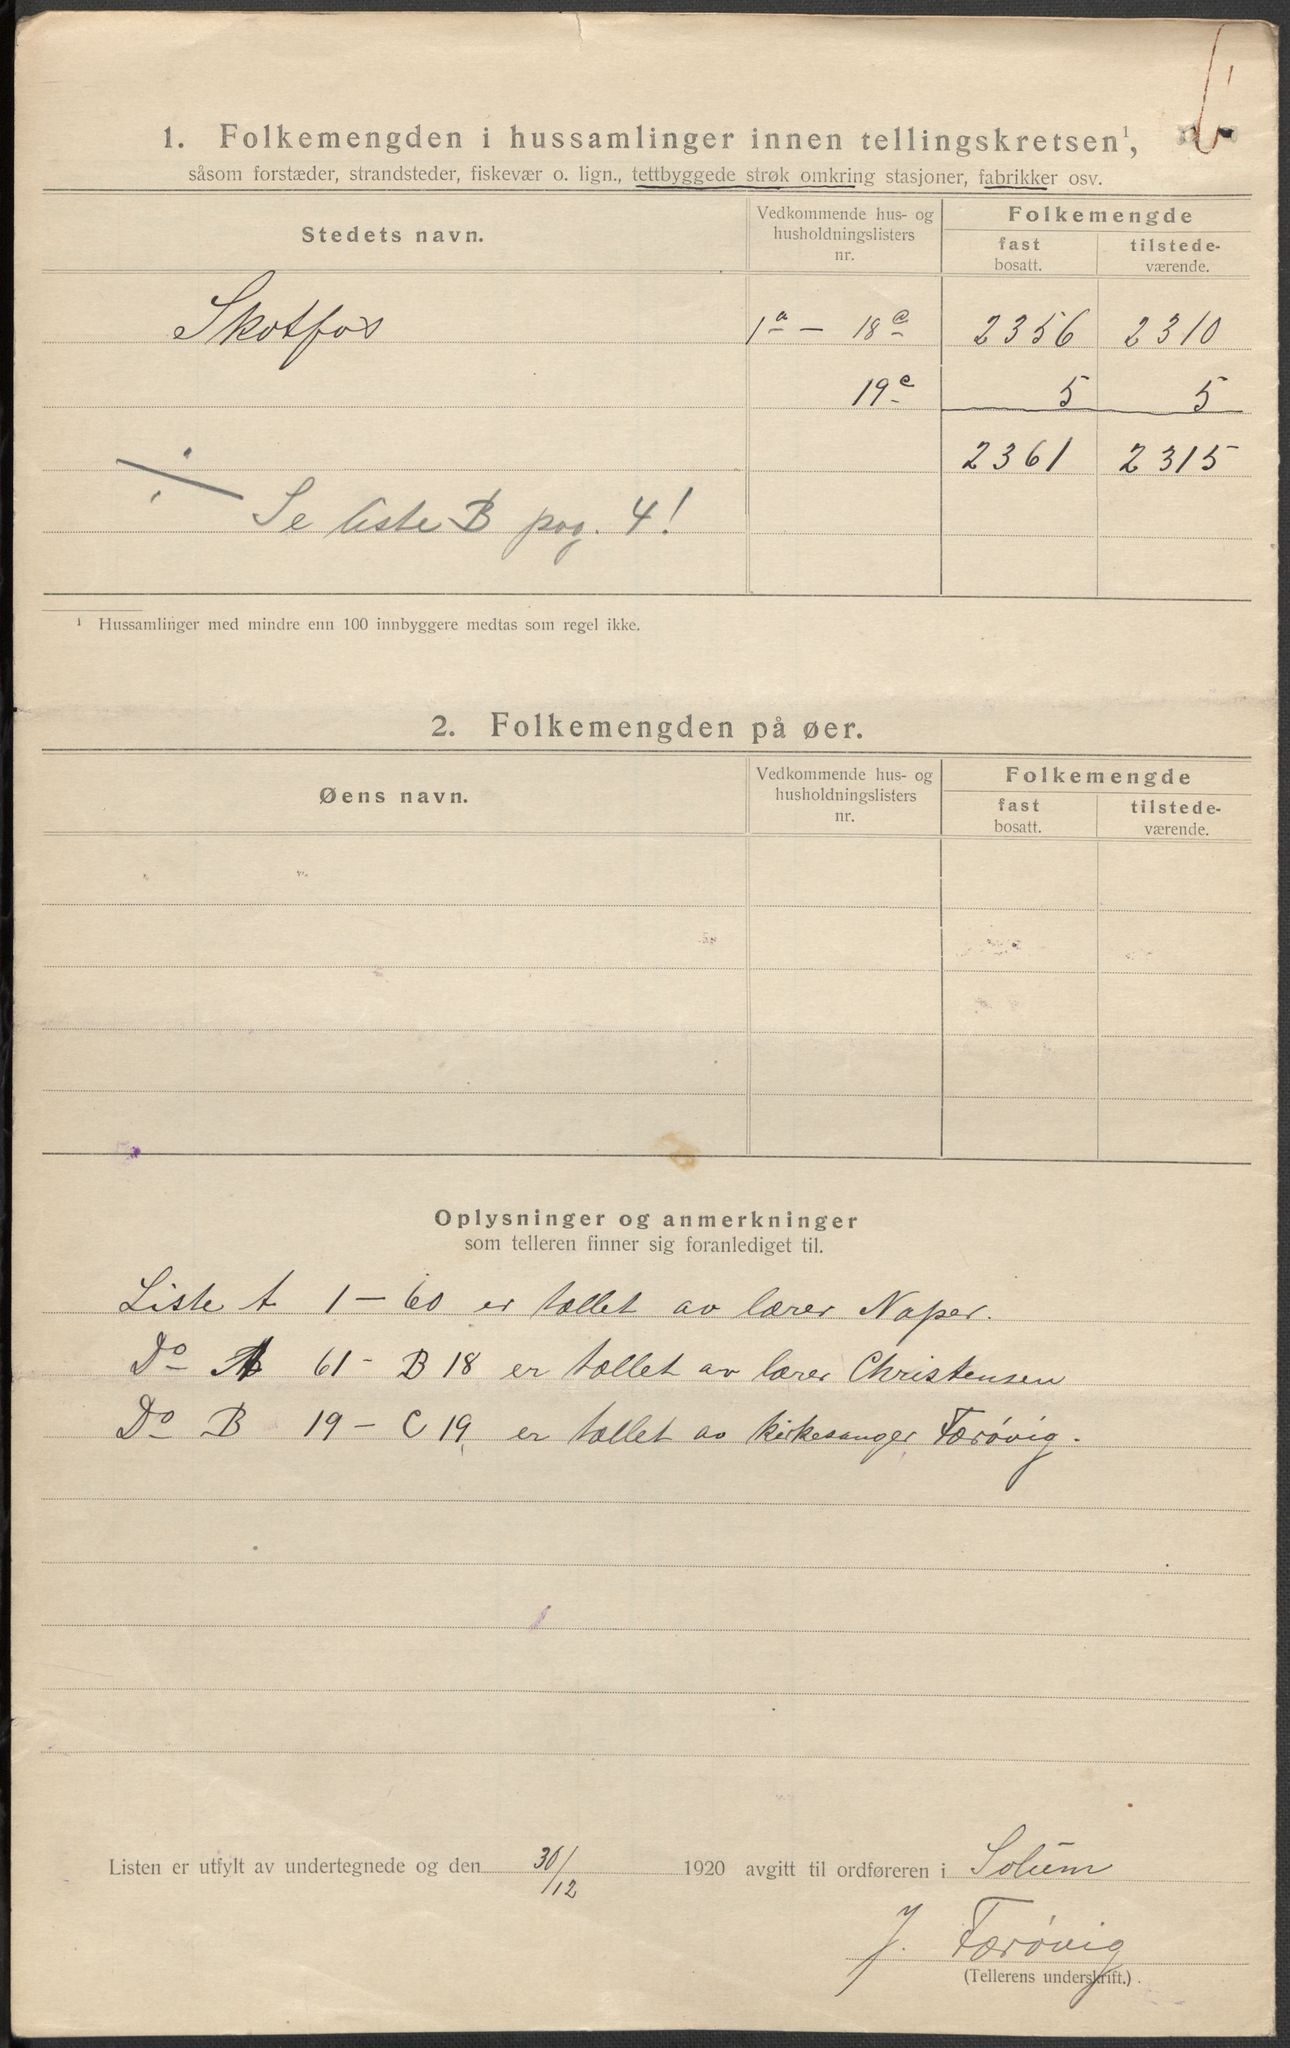 1. Folkemengden i hussamlinger innen tellingskretsen¹,
såsom forstæder, strandsteder, fiskevær o. lign., tettbyggede strøk omkring stasjoner, fabrikker osv.
Stedets navn.
Vedkommende hus- og husholdningslisters nr.
Folkemengde
fast bosatt.
tilstede-værende.
Skotfos 1a – 18c 2356 2310
19c 5 5
2361 2315
Se liste B pag. 4!
¹ Hussamlinger med mindre enn 100 innbyggere medtas som regel ikke.
2. Folkemengden på øer.
Øens navn.
Vedkommende hus- og husholdningslisters nr.
Folkemengde
fast bosatt.
tilstede-værende.
Oplysninger og anmerkninger
som telleren finner sig foranlediget til.
Liste A 1 – 60 er tællet av lærer Naper.
Do A 61 – B 18 er tællet av lærer Christensen
Do B 19 – C 19 er tællet av kirkesanger Færøvig.
Listen er utfylt av undertegnede og den 30/12 1920 avgitt til ordføreren i Solum
J. Færøvig
(Tellerens underskrift.)